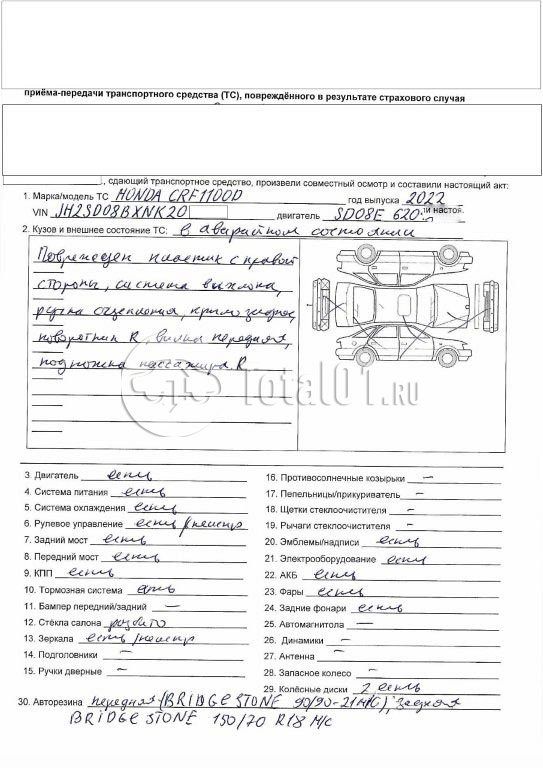 приёма-передачи транспортного средства (ТС), повреждённого в результате страхового случая
, сдающий транспортное средство, произвели совместный осмотр и составили настоящий акт:
1. Марка/модель ТС HONDA CRF1100D год выпуска 2022
VIN JH2SD08BXNK20 двигатель SD08E 620
2. Кузов и внешнее состояние ТС: в аварийном состоянии
Поврежден пластик с правой
стороны, система выхлопа,
ручка сцепления, крыло заднее,
поворотник R, вилка передняя,
подножка пассажира R
Total01.RU
3. Двигатель есть
4. Система питания есть
5. Система охлаждения есть
6. Рулевое управление есть/неиспр
7. Задний мост есть
8. Передний мост есть
9. КПП есть
10. Тормозная система есть
11. Бампер передний/задний —
12. Стёкла салона разбито
13. Зеркала есть/неиспр
14. Подголовники —
15. Ручки дверные —
16. Противосолнечные козырьки —
17. Пепельницы/прикуриватель —
18. Щетки стеклоочистителя —
19. Рычаги стеклоочистителя —
20. Эмблемы/надписи есть
21. Электрооборудование есть
22. АКБ есть
23. Фары есть
24. Задние фонари есть
25. Автомагнитола —
26. Динамики —
27. Антенна —
28. Запасное колесо —
29. Колёсные диски 2 есть
30. Авторезина передняя (BRIDGESTONE 90/90-21 М/С), задняя
BRIDGESTONE 150/70 R18 М/С